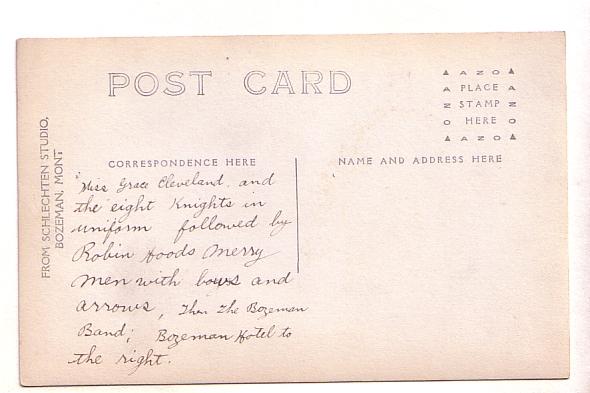 POST CARD
▲ AZO ▲
A PLACE A
Z STAMP Z
O HERE O
▲ AZO ▲
CORRESPONDENCE HERE
NAME AND ADDRESS HERE
FROM SCHLECHTEN STUDIO,
BOZEMAN, MONT
Miss Grace Cleveland. and
the eight Knights in
uniform followed by
Robin Hoods Merry
Men with bows and
arrows, Then The Bozeman
Band; Bozeman Hotel to
the right.